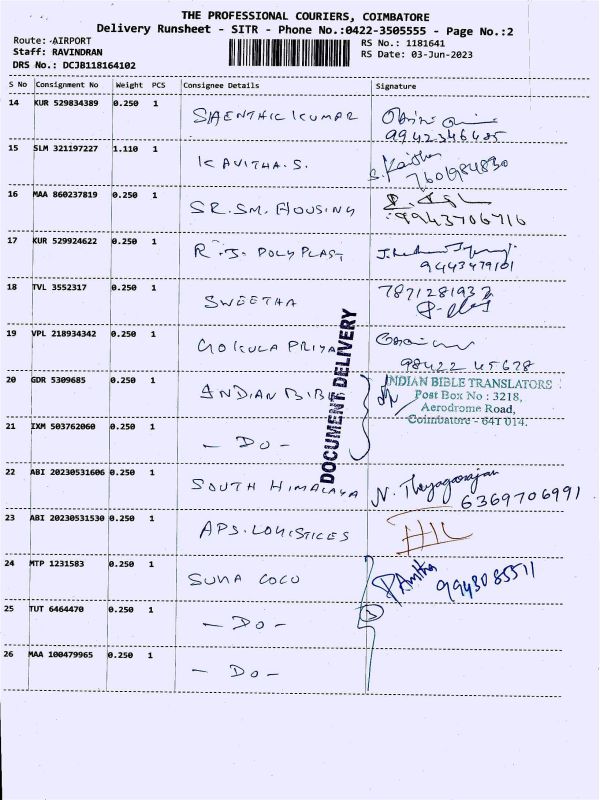 THE PROFESSIONAL COURIERS, COIMBATORE
Delivery Runsheet - SITR - Phone No.:0422-3505555 - Page No.:2
Route: AIRPORT
Staff: RAVINDRAN
DRS No.: DCJB118164102
RS No.: 1181641
RS Date: 03-Jun-2023
S No Consignment No Weight PCS Consignee Details Signature
14 KUR 529834389 0.250 1 SHENTHIL KUMAR
9942346485
15 SLM 321197227 1.110 1 KAVITHA.S. S. Kavitha
7601984830
16 MAA 860237819 0.250 1 SR.SM. HOUSING
9943706716
17 KUR 529924622 0.250 1 R.J. POLYPLAST
9443479101
18 TVL 3552317 0.250 1 SWEETHA 7871281932
19 VPL 218934342 0.250 1 GOKULA PRIYA
98422 45678
20 GDR 5309685 0.250 1 INDIAN BIBLE
INDIAN BIBLE TRANSLATORS
Post Box No : 3218,
Aerodrome Road,
Coimbatore - 641 014.
DOCUMENT DELIVERY
21 IXM 503762060 0.250 1 - DO -
22 ABI 20230531606 0.250 1 SOUTH HIMALAYA N. Thyagarajan
6369706991
23 ABI 20230531530 0.250 1 APS.LOGISTICES
24 MTP 1231583 0.250 1 SUNA COCO PAmitha 9943085511
25 TUT 6464470 0.250 1 - DO -
26 MAA 100479965 0.250 1 - DO -